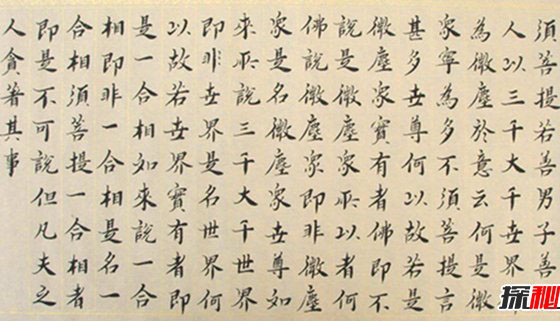 須菩提若善男子善
人以三千大千世界
為微塵於意云何是微
眾寧為多不須菩提言
甚多世尊何以故若是
微塵眾實有者佛即不
說是微塵眾所以者何
佛說微塵眾即非微塵
眾是名微塵眾世尊如
來所說三千大千世界
即非世界是名世界何
以故若世界實有者即
是一合相如來說一合
相即非一合相是名一
合相須菩提一合相者
即是不可說但凡夫之
人貪著其事
探秘